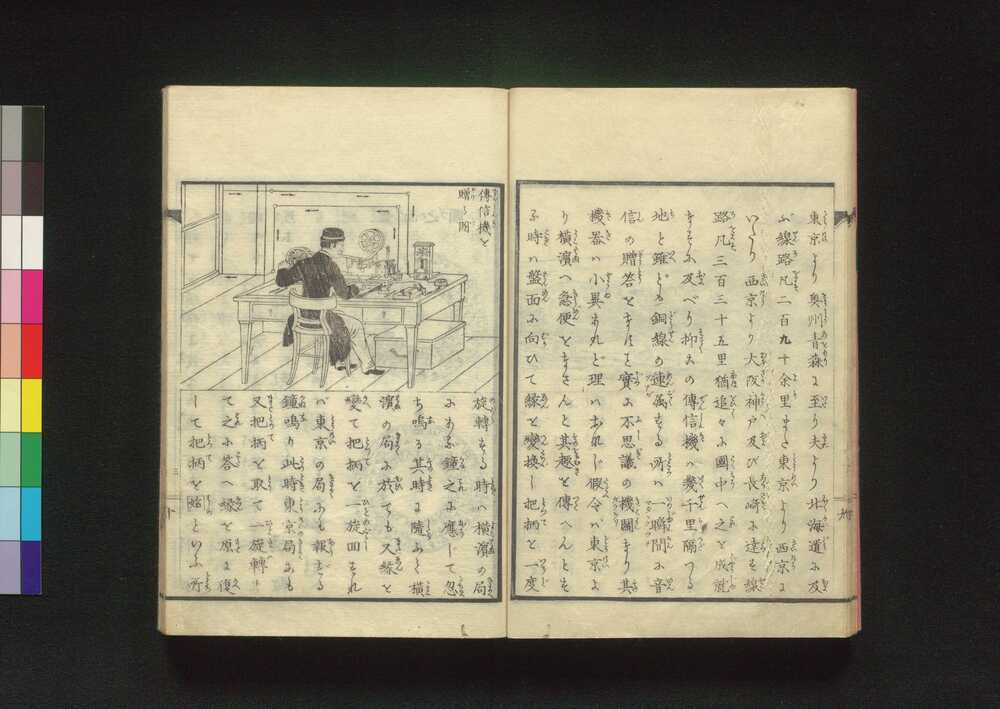 東京より奥州青森に至り夫より北海道に及
ぶ線路凡二百九十余里また東京より西京に
いたり西京より大阪神戸及び長崎に達する線
路凡三百三十五里猶追々に國中へ之を成就
するに及べり抑この傳信機ハ幾千里隔つる
地と雖ども銅線の連属する所ハ瞬間に音
信の贈答をするは實に不思議の機関なり其
機器ハ小異あれど理ハおなじ假令バ東京よ
り横濱へ急便をなさんと其趣を傳へんとす
る時ハ盤面に向ひて線を變換し把柄を一度
傳信機を
贈る図
旋轉する時ハ横濱の局
にある鐘之に應じて忽
ち鳴る其時に随ふと横
濱の局に於ても又線を
變て把柄を一旋回すれ
バ東京の局にも報ずる
鐘鳴り此時東京局にも
又把柄を取て一旋轉し
て之に答へ線を原に復
して把柄を始といふ所